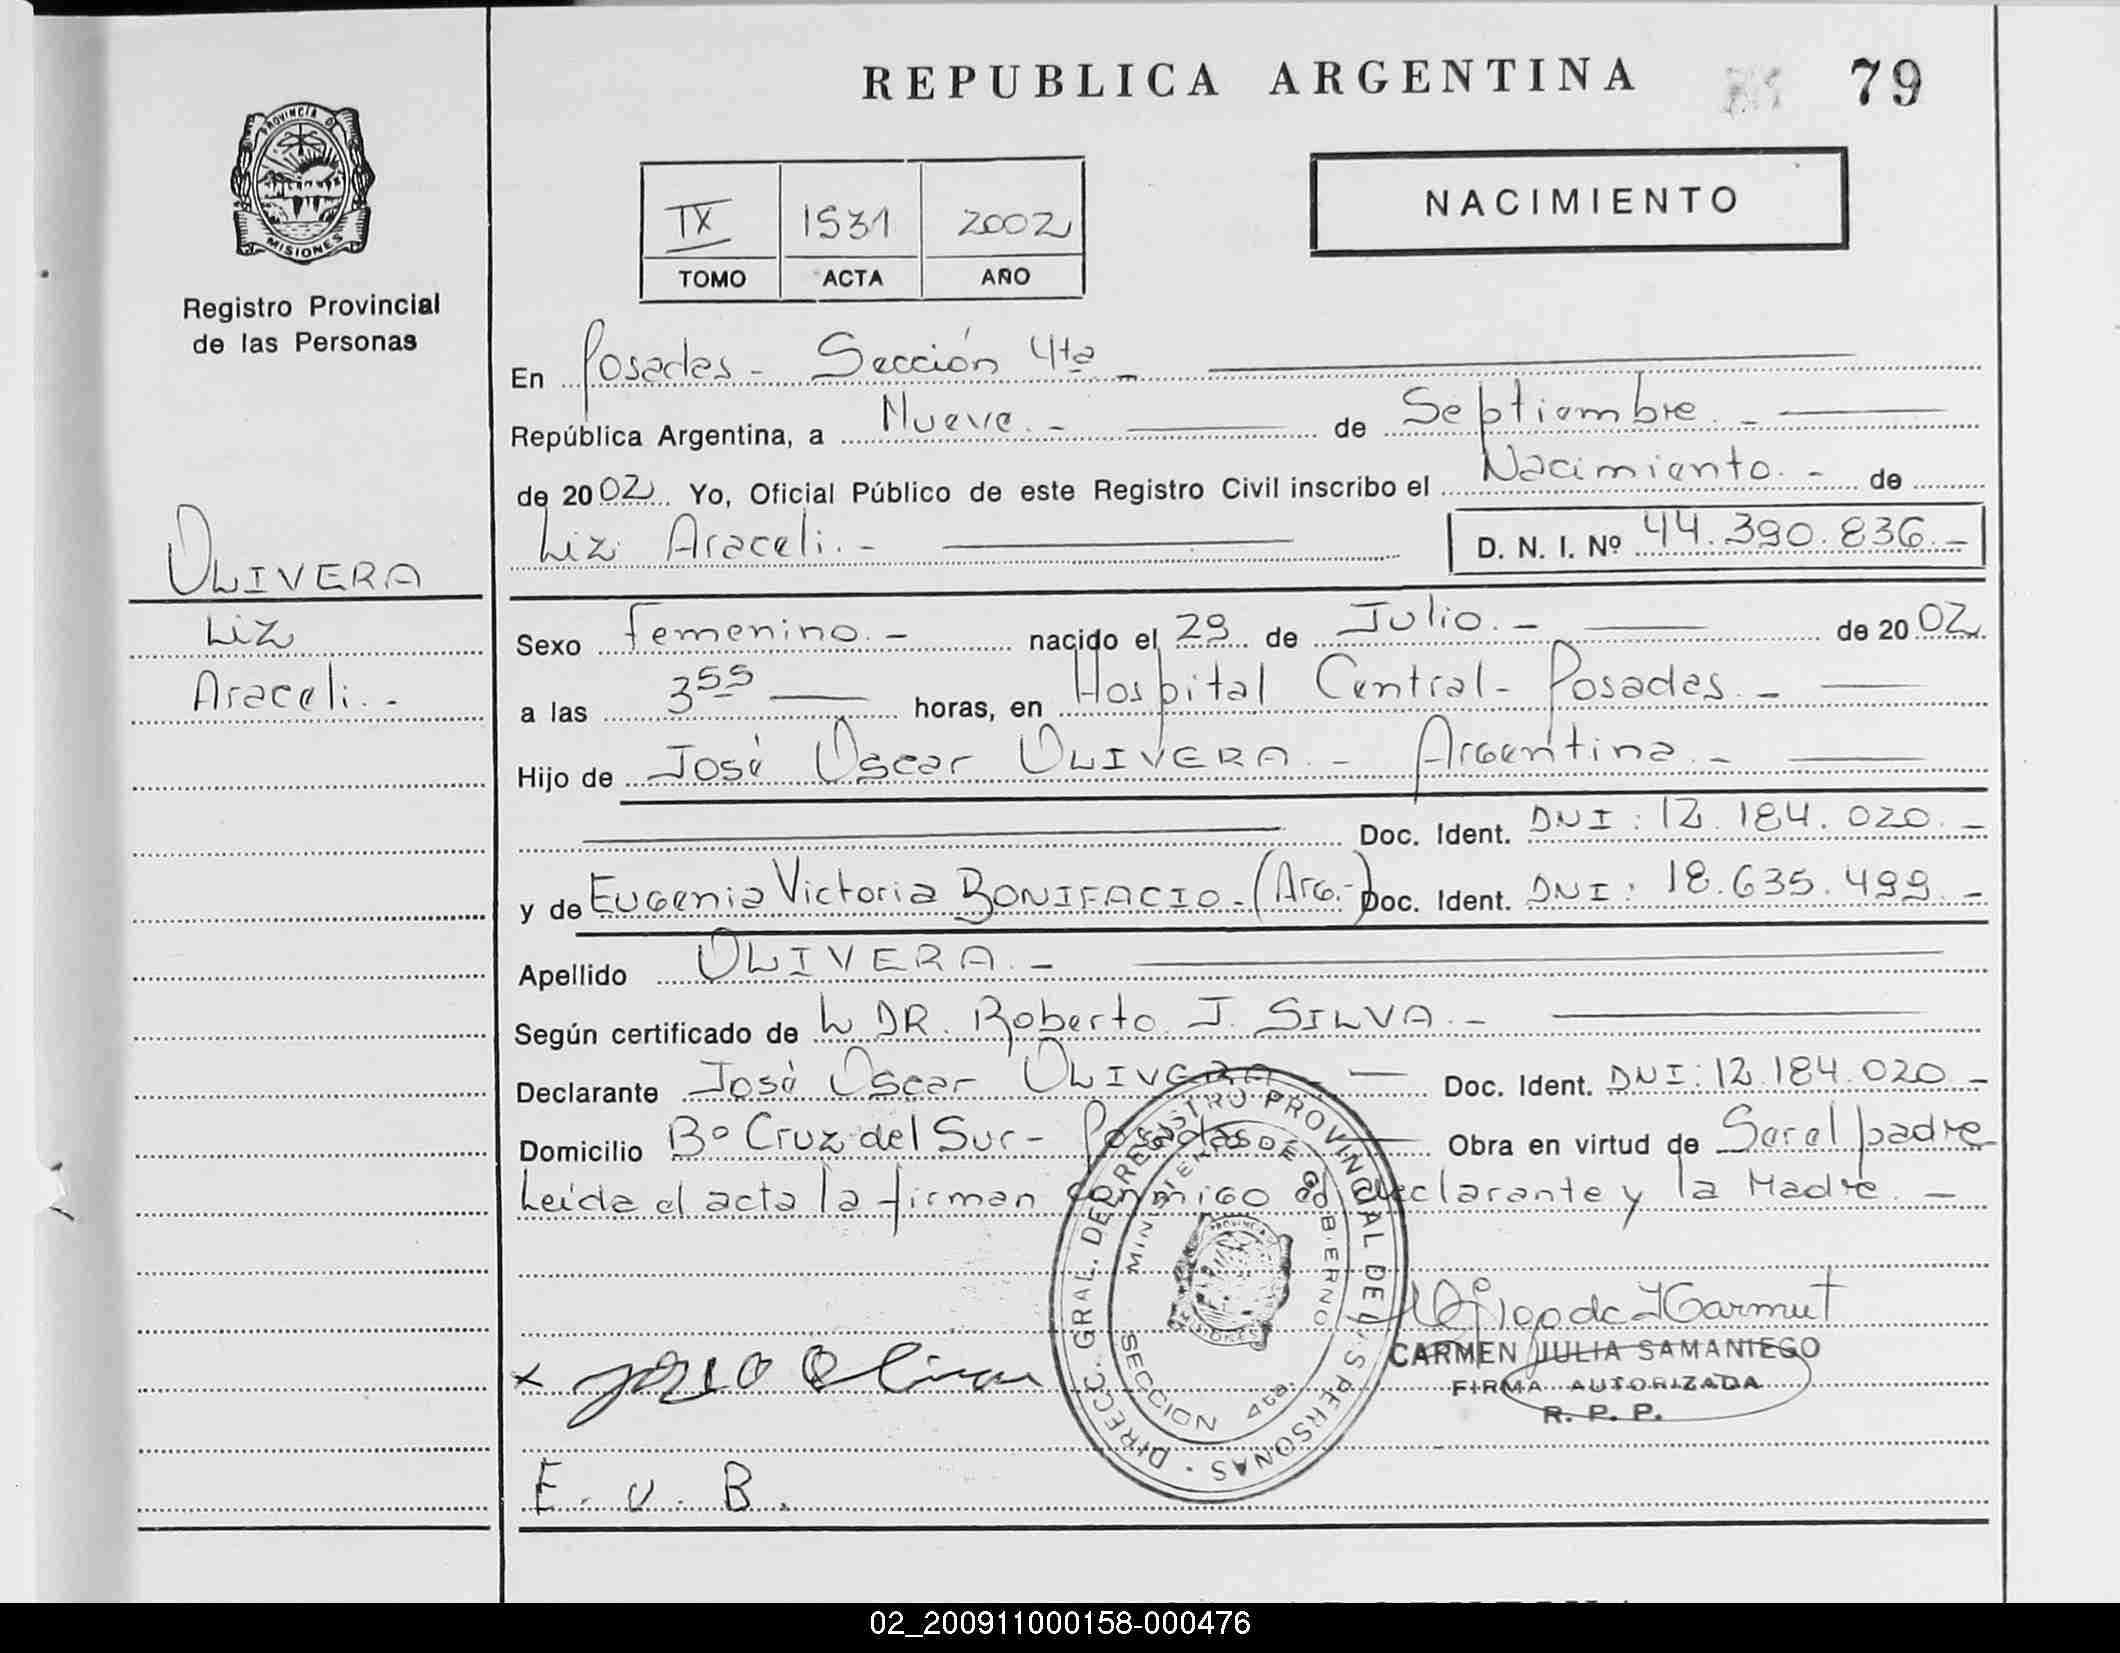 REPUBLICA ARGENTINA 79
PROVINCIA DE
MISIONES
Registro Provincial
de las Personas
NACIMIENTO
IX 1531 2002
TOMO ACTA AÑO
En Posadas - Sección 4ta -
República Argentina, a Nueve. - de Septiembre. -
de 2002 Yo, Oficial Público de este Registro Civil inscribo el Nacimiento. - de
Liz Araceli. - D. N. I. Nº 44.390.836. -
OLIVERA
Liz
Araceli. -
Sexo Femenino. - nacido el 29 de Julio. - de 2002
a las 3 55 horas, en Hospital Central - Posadas. -
Hijo de José Oscar OLIVERA. - Argentina. -
Doc. Ident. DNI: 12.184.020. -
y de Eugenia Victoria BONIFACIO - (Arg. -) Doc. Ident. DNI: 18.635.499. -
Apellido OLIVERA. -
Según certificado de L DR. Roberto J. SILVA. -
Declarante José Oscar OLIVERA - Doc. Ident. DNI: 12.184.020 -
Domicilio Bº Cruz del Sur - Posadas Obra en virtud de Ser el padre
Leída el acta la firman conmigo el declarante y la Madre. -
DIRECC. GRAL. DEL REGISTRO PROVINCIAL DE L.S PERSONAS
MINISTERIO DE GOBIERNO
SECCION 4ta.
PROVINCIA
MISIONES
CARMEN JULIA SAMANIEGO
FIRMA AUTORIZADA
R. P. P.
x José O Olivera
E. V. B.
02_200911000158-000476